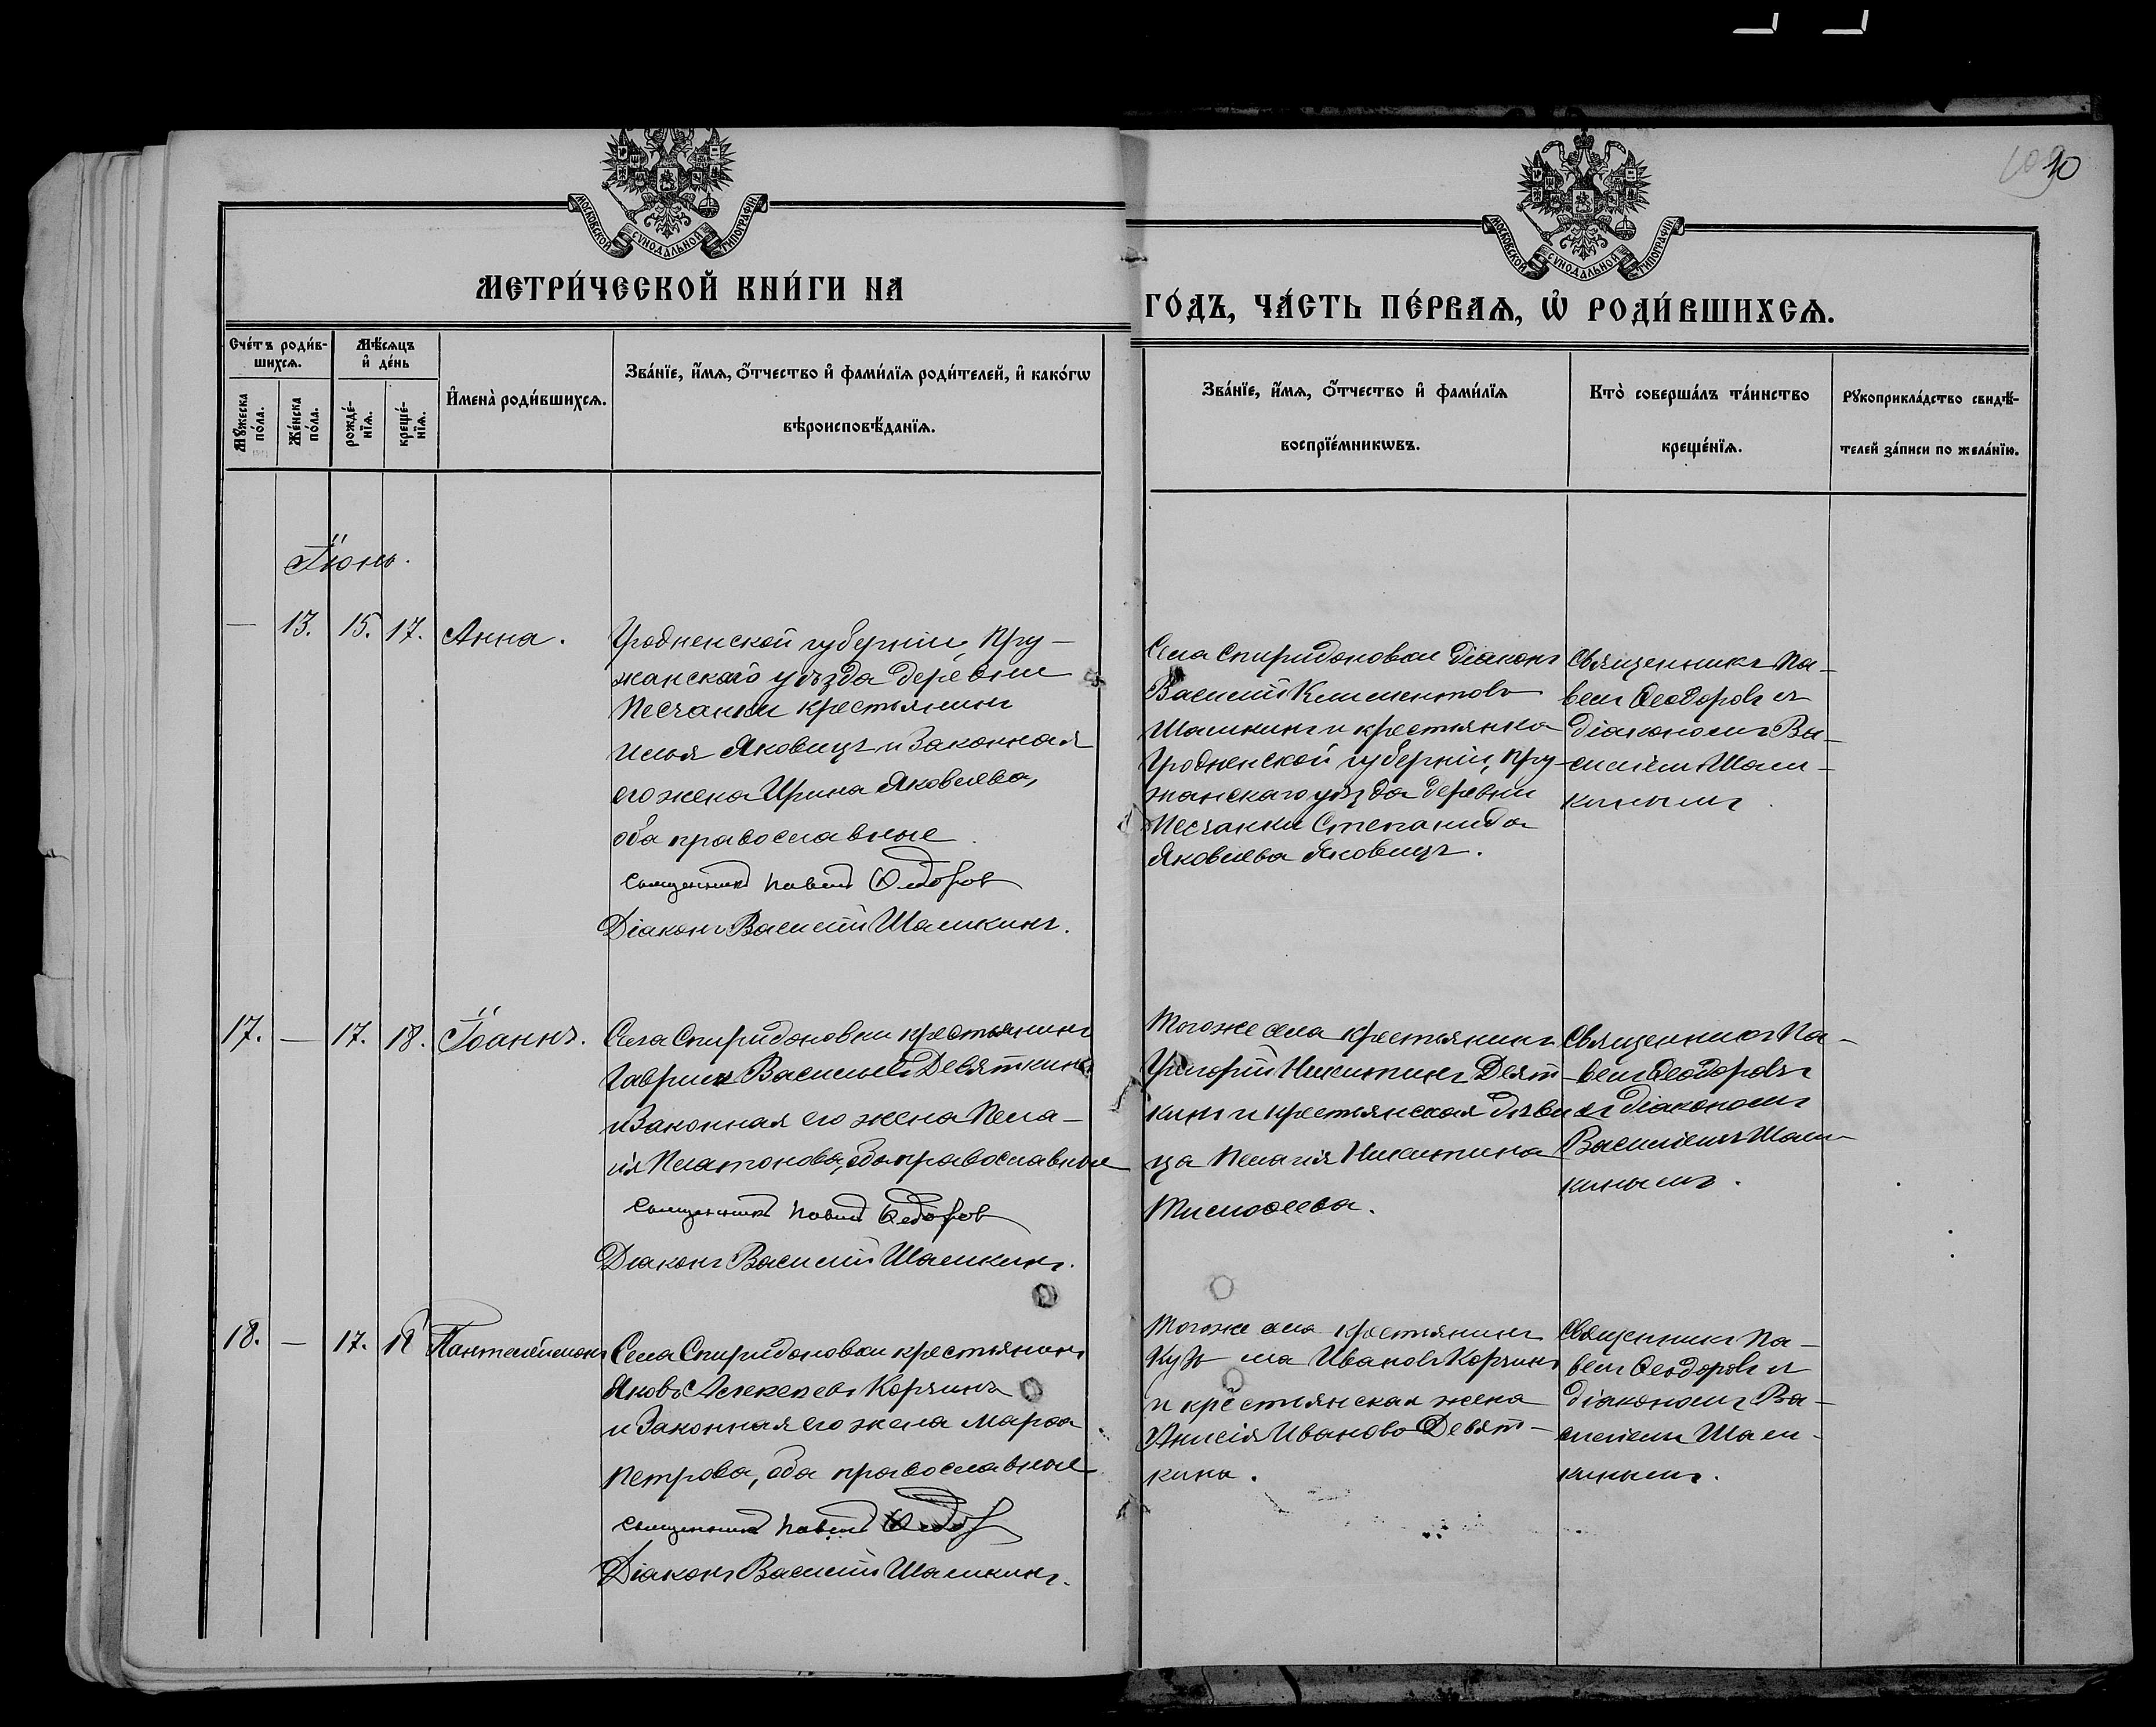 1090
МОСКОВСКОЙ СѴНОДАЛЬНОЙ ТИПОГРАФІИ
МОСКОВСКОЙ СѴНОДАЛЬНОЙ ТИПОГРАФІИ
МЕТРИ́ЧЕСКОЙ КНИ́ГИ НА
ГО́ДЪ, ЧА́СТЬ ПЕ́РВАѦ, Ѡ҆ РОДИ́ВШИХСѦ.
Сче́тъ роди́в-
шихсѧ.
Мѣ́сѧцъ
и҆ де́нь
Мꙋ́жеска
по́ла.
Же́нска
по́ла.
рожде́-
нїѧ.
креще́-
нїѧ.
И҆мена̀ роди́вшихсѧ.
Зва́нїе, и҆́мѧ, ѻ҆́тчество и҆ фами́лїѧ роди́телей, и҆ како́гѡ
вѣроисповѣ́данїѧ.
Зва́нїе, и҆́мѧ, ѻ҆́тчество и҆ фами́лїѧ
воспрїе́мникѡвъ.
Кто̀ соверша́лъ та́инство
креще́нїѧ.
Рꙋкоприкла́дство свидѣ́-
телей за́писи по жела́нїю.
Іюнь.
— 13. 15. 17. Анна.
Гродненской губерніи, Пру-
жанскаго уѣзда деревни
Песчанки крестьянинъ
Илья Яковицъ и законная
его жена Ирина Яковлева,
оба православные.
Священникъ Павелъ Ѳедоров
Діаконъ Василій Шашкинъ.
Села Спиридоновки діаконъ
Василій Климентовъ
Шашкинъ и крестьянка
Гродненской губерніи, Пру-
жанскаго уѣзда деревни
Песчанки Степанида
Яковлева Яковицъ.
Священникъ Па-
велъ Ѳеодоровъ съ
діакономъ Ва-
силіемъ Шаш-
кинымъ.
17. — 17. 18. Іоаннъ.
Села Спиридоновки крестьянинъ
Гавриилъ Васильевъ Девяткинъ
и законная его жена Пела-
гія Платонова, оба православные
Священникъ Павелъ Ѳедоров
Діаконъ Василій Шашкинъ.
Тогоже села крестьянинъ
Григорій Никитинъ Девят-
кинъ и крестьянская дѣви-
ца Пелагія Никитина
Тимоѳеева.
Священникъ Па-
велъ Ѳеодоровъ
съ діакономъ
Василіемъ Шаш-
кинымъ.
18. — 17. 18 Пантелеймонъ
Села Спиридоновки крестьянинъ
Яковъ Алексеевъ Корчинъ
и законная его жена Марѳа
Петрова, оба православные
Священникъ Павелъ Ѳедоров
Діаконъ Василій Шашкинъ.
Тогоже села крестьянинъ
Кузьма Ивановъ Корчинъ
и крестьянская жена
Анисія Иванова Девят-
кина.
Священникъ Па-
велъ Ѳеодоровъ съ
діакономъ Ва-
силіемъ Шаш-
кинымъ.